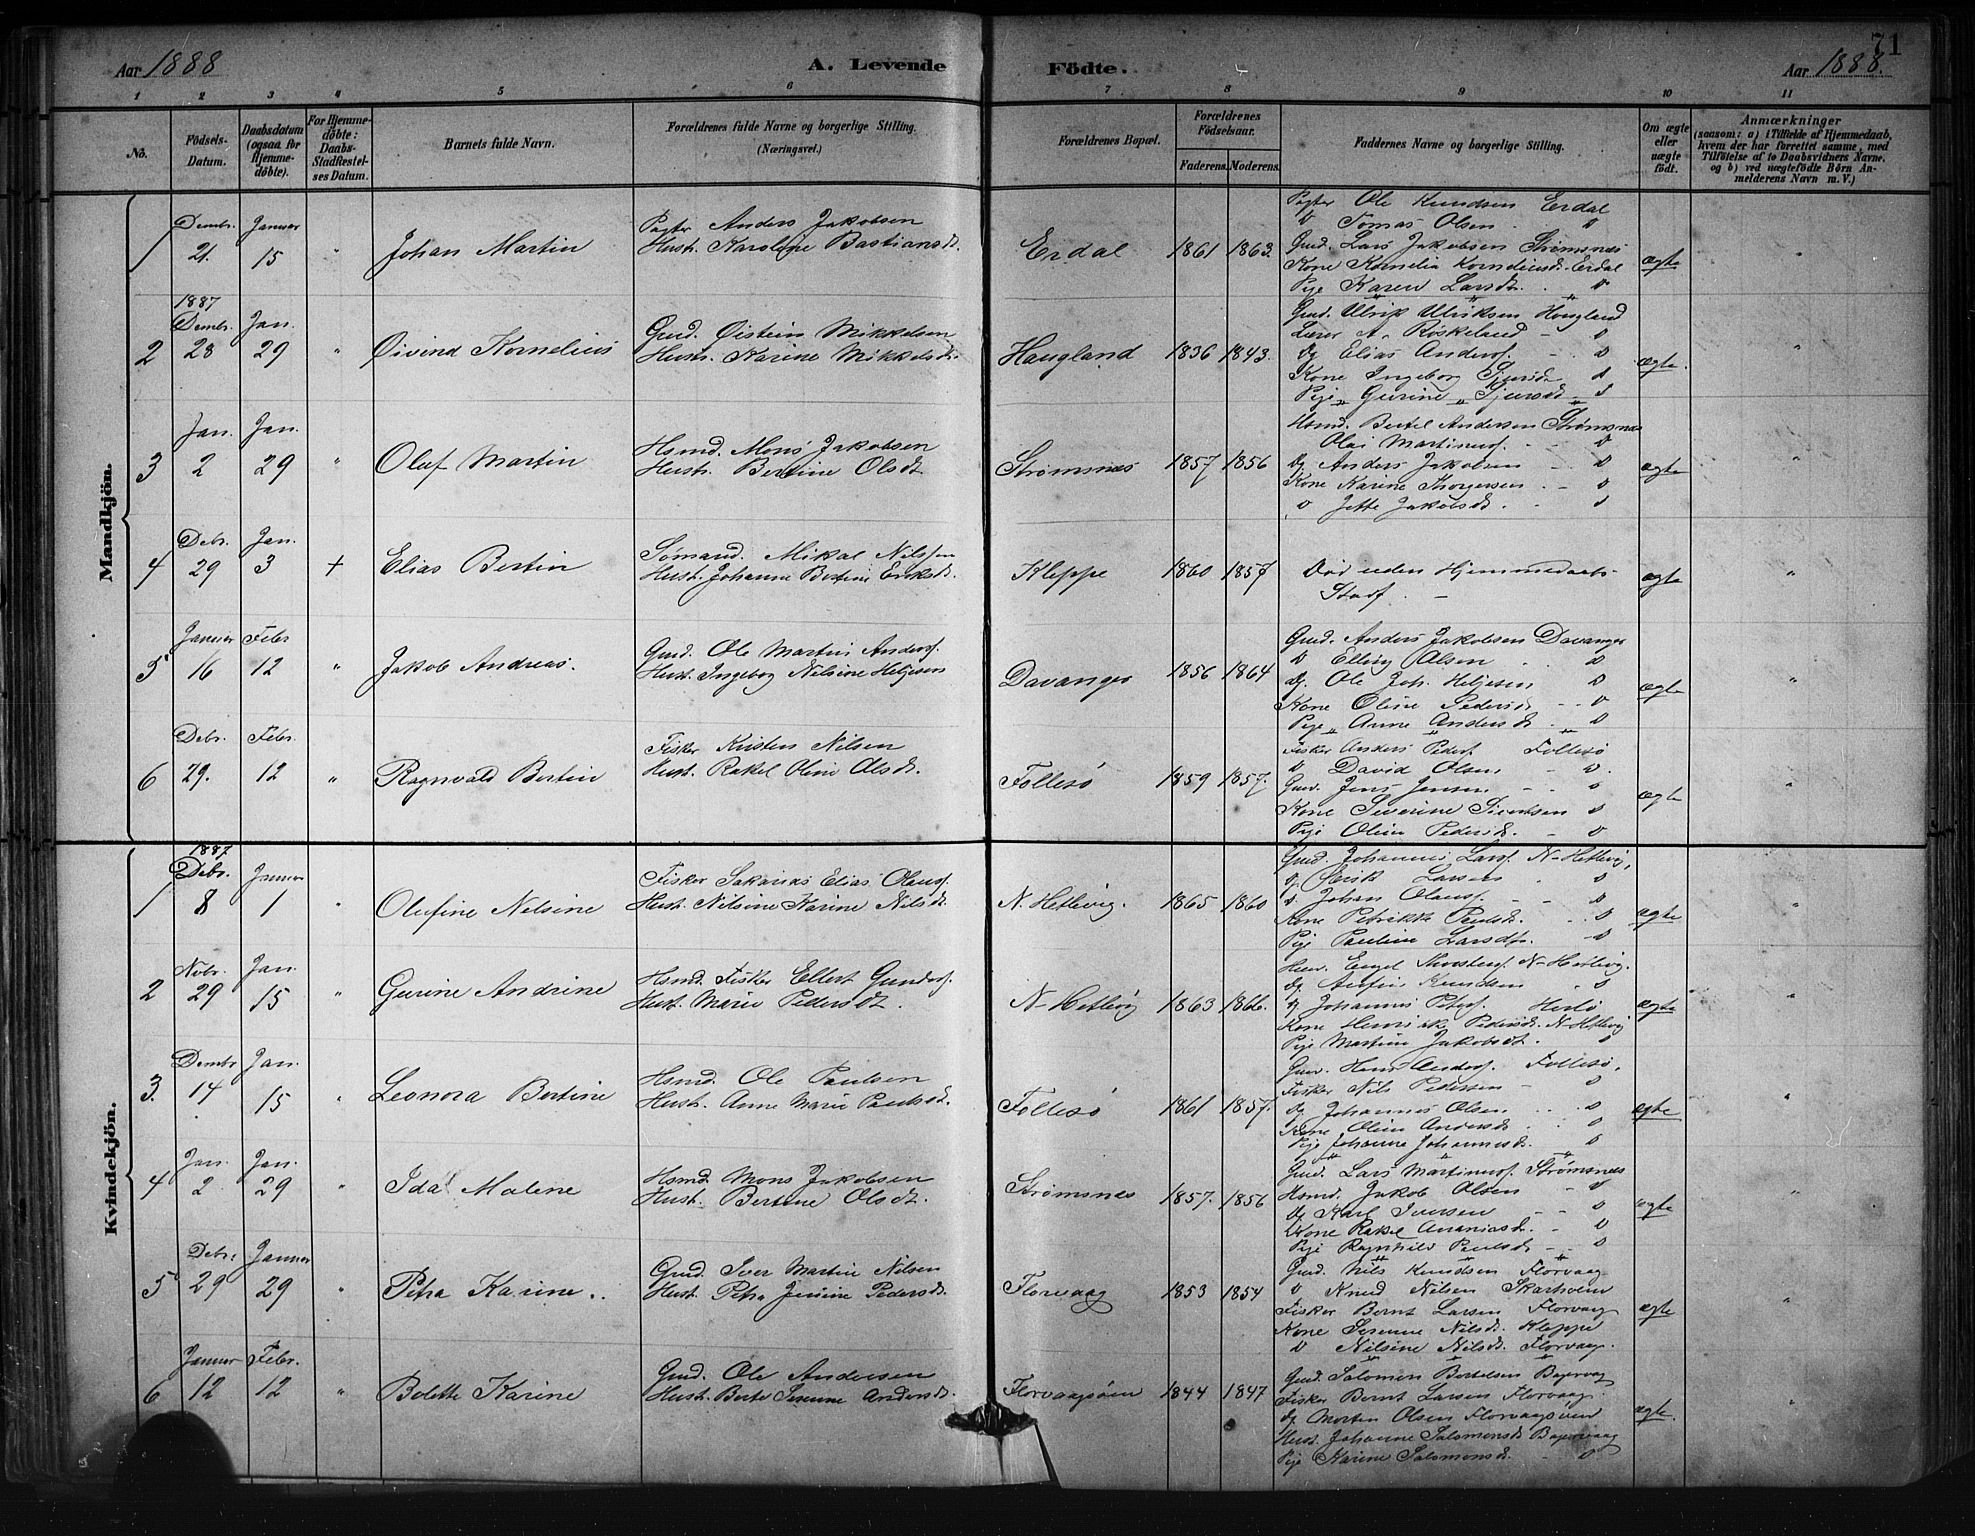 71
Aar 1888
A. Levende Födte.
Aar 1888.
1 2 3 4 5 6 7 8 9 10 11
No.
Födsels-Datum.
Daabsdatum (ogsaa for Hjemme-döbte).
For Hjemme-döbte: Daabs-Stadfæstel-ses Datum.
Barnets fulde Navn.
Forældrenes fulde Navne og borgerlige Stilling. (Næringsvei.)
Forældrenes Bopæl.
Forældrenes Födselsaar.
Faderens. Moderens.
Faddernes Navne og borgerlige Stilling.
Om ægte eller uægte födt.
Anmærkninger
(saasom: a) i Tilfælde af Hjemmedaab, hvem der har forrettet samme, med Tilföielse af to Daabsvidners Navne, og b) ved uægtefödte Börn An-melderens Navn m. V.)
Mandkjön.
1 Dembr. 21. Januar 15 " Johan Martin
Pagter Anders Jakobsen
Hust. Karoline Bastiansd.
Erdal 1861 1863. ægte "
Pagter Ole Knudsen Erdal
D Tomas Olsen D
Gmd. Lars Jakobsen Strømsnes
Kone Kornelia Korneliusd. Erdal
Pige Karen Larsdtr. D
2 1887 Dembr. 28 Jan. 29 " Øivind Kornelius
Gmd. Øistein Mikkelsen
Hustr. Karine Mikkelsd.
Haugland 1836 1843. ægte. "
Gmd. Ulrik Ulriksen Hougland
Lærer A. Røskeland - D
Ug Elias Anders. - D
Kone Ingeborg Sjursd. D
Pige Gurine Sjursd. D
3 Jan. 2 Jan. 29 " Oluf Martin
Hsmd. Mons Jakobsen
Hustr. Bertine Olsdt.
Strømsnes 1857 1856 ægte "
Hsmd. Bertel Andersen Strømsnes
Olai Martinus. D
Ug Anders Jakobsen - D
Kone Karine Thorgersen. - D
D Jette Jakobsd. D
4 Debr. 29 Jan. 3 + Elias Bertin
Sømand. Mikal Nilssen
Hust. Johanne Bertine Eriksd.
Kleppe 1860 1857 ægte "
Død uden Hjemmedaabs-
Stadf. -
5 Januar 16 Febr 12 " Jakob Andreas.
Gmd. Ole Martin Anders.
Hust. Ingeborg Nilsine Heljesen
Davanger 1856 1864 ægte "
Gmd. Anders Jakobsen Davanger
D Elling Olsen D
Ug. Ole Joh. Heljesen D
Kone Oline Pedersd. D
Pige Anne Andersd. D
6 Debr. 29. Febr. 12 " Ragnvald Bertin
Fisker Kristen Nilsen
Hust. Rakel Oline Olsd.
Follesø 1859 1857. ægte "
Fisker Anders Peders. Follesø
D David Olsen D.
Gmd. Jens Jensen D
Kone Severine Sivertsen D
Pige Oline Pedersd. D
Kvindekjön.
1 1887 Debr. 8 Januar 1 " Olufine Nelsine
Fisker Sakarias Elias Olaus.
Hust. Nilsine Karine Nilsd.
N. Hetlevig. 1865 1860 ægte "
Gmd. Johannes Lars. N-Hetlevig,
Ug Erik Larsen D
D. Johan Olaus. D
Kone Petrikke Paulsd. D
Pige Pauline Larsdtr. D
2 Nvbr. 29 Jan. 15 " Gurine Andrine
Hsmd. Fisker Ellert Gunders.
Hust. Marie Pedersdt.
N-Hetlevig 1863 1866. ægte "
Engel Thorsters. N-Hetlevig.
Ug Knudsen D
Ug Johannes Peters. Herlø
Kone Henrikke Pedersd. N-Hetlevig
Pige Martine Jakobsdt. D
3. Dembr 14 Jan. 15 " Leonora Bertine
Hsmd. Ole Paulsen
Hust. Anne Marie Paulsd.
Follesø 1861 1857. ægte "
Gmd. Follesø,
Fisker Nils Pedersen D
Ug Johannes Olsen D
Kone Oline Andersd. D
Pige Johanne Johannesd. D
4 Jan. 2 Jan. 29 " Ida Malene
Hsmd. Mons Jakobsen
Hust. Bertine Olsdt.
Strømsnes 1857. 1856 ægte "
Gmd. Lars Martinus. Strømsnes
Hsmd. Jakob Olsen D
Ug Karl Iversen D
Kone Rakel Ananiasd. D
Pige Ragnhild Paulsd. D
5 Debr. 29 Januar 29 " Petra Karine.
Gmd. Iver Martin Nilsen
Hust. Petra Jensine Pedersd.
Florvaag 1853 1854 ægte "
Gmd. Nils Knudsen Florvaag
D Knud Nilsen Skarholm
Fisker Bernt Larsen Florvaag
Kone Serine Nilsd. Kleppe
D Nilsine Nilsd. Florvaag.
6 Januar 12 Febr. 12 " Bolette Karine
Gmd. Ole Andersen
Hust. Berte Serine Andersd.
Florvaagsøen 1844 1847 ægte.
Gmd. Salomon Bertelsen
Fisker Bernt Larsen Florvaag
Ug Morten Olsen Florvaagsøen
Hust. Johanne Salomonsd.
Pige Karine Salomonsd. D